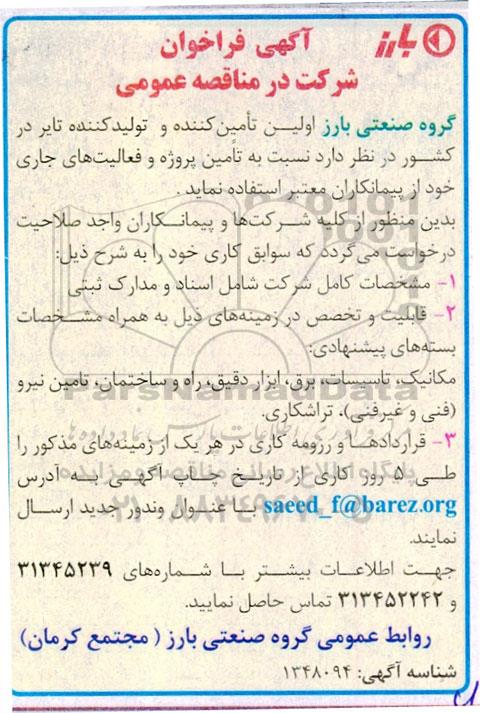 بارز
آگهی فراخوان
شرکت در مناقصه عمومی
گروه صنعتی بارز اولین تأمین‌کننده و تولیدکننده تایر در
کشور در نظر دارد نسبت به تأمین پروژه و فعالیت‌های جاری
خود از پیمانکاران معتبر استفاده نماید.
بدین منظور از کلیه شرکت‌ها و پیمانکاران واجد صلاحیت
درخواست می‌گردد که سوابق کاری خود را به شرح ذیل:
۱- مشخصات کامل شرکت شامل اسناد و مدارک ثبتی
۲- قابلیت و تخصص در زمینه‌های ذیل به همراه مشخصات
بسته‌های پیشنهادی:
مکانیک، تاسیسات، برق، ابزار دقیق، راه و ساختمان، تامین نیرو
(فنی و غیرفنی)، تراشکاری.
۳- قراردادها و رزومه کاری در هر یک از زمینه‌های مذکور را
طی ۵ روز کاری از تاریخ چاپ آگهی به آدرس
saeed_f@barez.org با عنوان وندور جدید ارسال
نمایند.
جهت اطلاعات بیشتر با شماره‌های ۳۱۳۴۵۲۳۹
و ۳۱۳۴۵۲۲۴۲ تماس حاصل نمایید.
روابط عمومی گروه صنعتی بارز ( مجتمع کرمان)
شناسه آگهی: ۱۳۴۸۰۹۴
ParsNamadData
پایگاه اطلاع رسانی مناقصه و مزایده